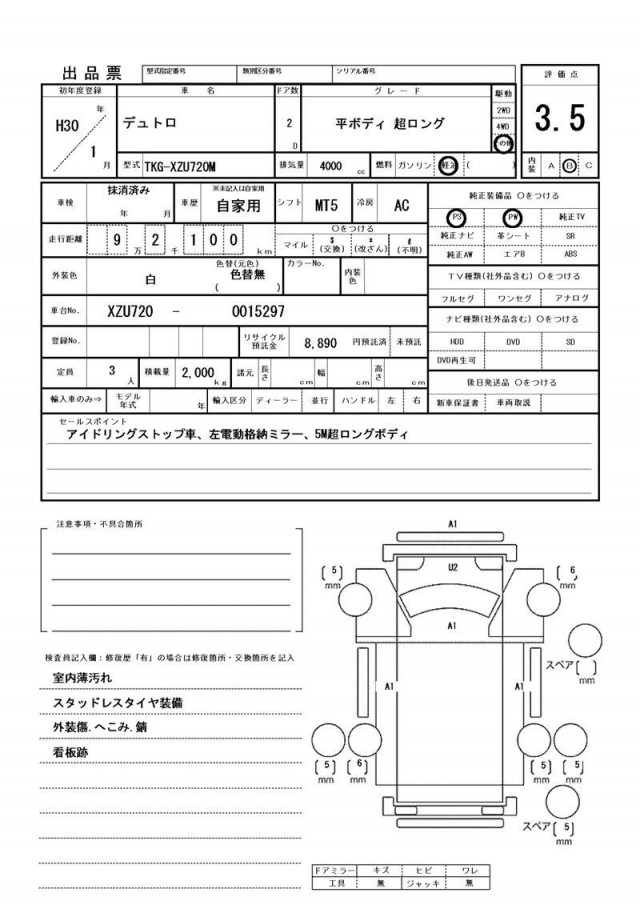 出品票 型式指定番号 類別区分番号 シリアル番号 評価点
初年度登録 車名 ドア数 グレード 駆動
H30 年 1 月 デュトロ 2 D 平ボディ 超ロング 2WD 4WD その他 3.5
型式 TKG-XZU720M 排気量 4000 cc 燃料 ガソリン 軽油 ( ) 内装 A B C
車検 抹消済み 年 月 車歴 ※未記入は自家用 自家用 シフト MT5 冷房 AC 純正装備品 〇をつける
走行距離 9 万 2 千 1 0 0 km 〇をつける マイル $ (交換) * (改ざん) # (不明) PS PW 純正TV
純正ナビ 革シート SR
外装色 白 色替(元色) 色替無 ( ) カラーNo. 内装色 純正AW エアB ABS
TV種類(社外品含む) 〇をつける
フルセグ ワンセグ アナログ
車台No. XZU720 - 0015297 ナビ種類(社外品含む) 〇をつける
登録No. リサイクル預託金 8,890 円預託済 未預託 HDD DVD SD
DVD再生可
定員 3 人 積載量 2,000 kg 諸元 長さ cm 幅 cm 高さ cm 後日発送品 〇をつける
輸入車のみ⇒ モデル年式 年 輸入区分 ディーラー 並行 ハンドル 左 右 新車保証書 車両取説
セールスポイント
アイドリングストップ車、左電動格納ミラー、5M超ロングボディ
注意事項・不具合箇所
検査員記入欄:修復歴「有」の場合は修復箇所・交換箇所を記入
室内薄汚れ
スタッドレスタイヤ装備
外装傷.へこみ.錆
看板跡
A1
U2
(5) mm (6) mm
A1
スペア( ) mm
A1 A1
(5) mm (6) mm (5) mm (5) mm
スペア(5) mm
ドアミラー キズ ヒビ ワレ
工具 無 ジャッキ 無